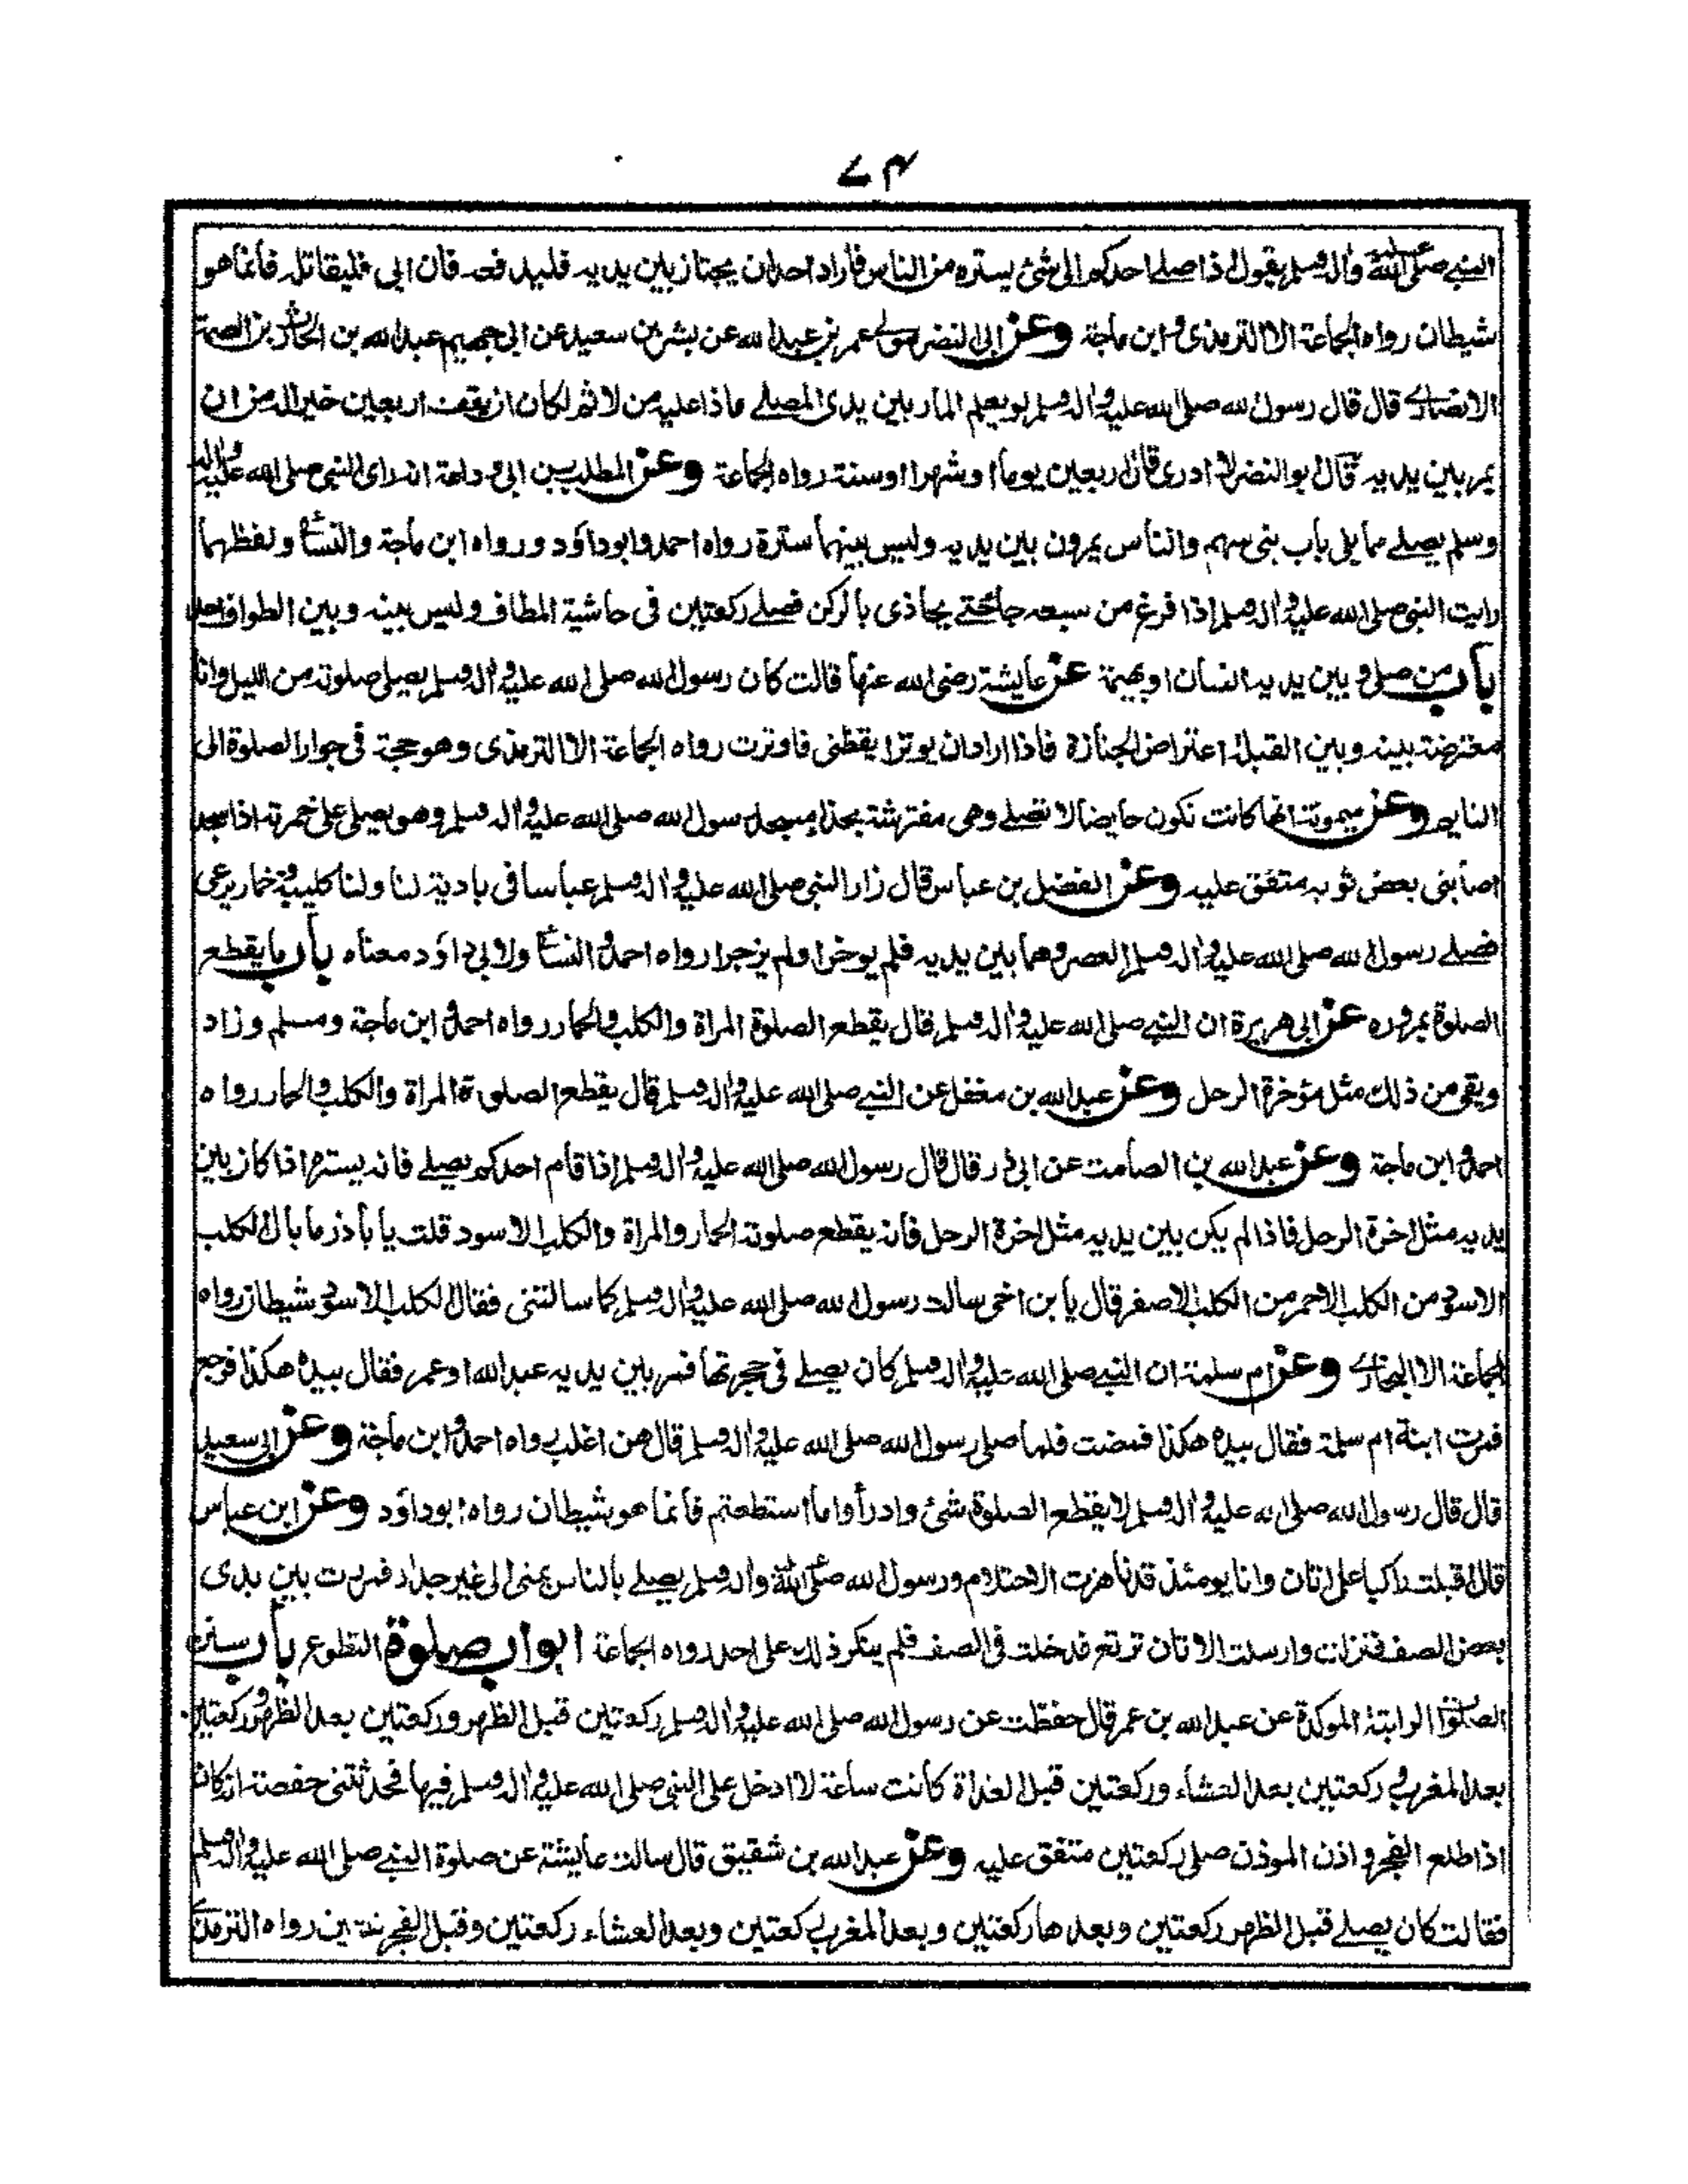 ٧٤
النبي صلى الله عليه وآله وسلم يقول اذا صلى احدكم الى شئ يستره من الناس فاراد احد ان يجتاز بين يديه فليدفعه فان ابى فليقاتله فانما هو
شيطان رواه الجماعة الا الترمذى وابن ماجة وعن ابى النضر مولى عمر بن عبد الله عن بشر بن سعيد عن ابى جهيم عبد الله بن الحارث بن الصمة
الانصارى قال قال رسول الله صلى الله عليه وآله وسلم لو يعلم المار بين يدى المصلى ماذا عليه من الاثم لكان ان يقف اربعين خير اله من ان
يمر بين يديه قال ابو النضر لا ادرى قال اربعين يوما او شهرا او سنة رواه الجماعة وعن المطلب بن ابى وداعة انه راى النبي صلى الله عليه وآله
وسلم يصلى مما يلى باب بنى سهم والناس يمرون بين يديه وليس بينهما سترة رواه احمد وابو داؤد ورواه ابن ماجة والنسائى ولفظهما
رايت النبي صلى الله عليه وآله وسلم اذا فرغ من سبعه جاء حتى يحاذى بالركن فصلى ركعتين فى حاشية المطاف وليس بينه وبين الطواف احد
باب من صلى وبين يديه انسان او بهيمة عن عايشة رضى الله عنها قالت كان رسول الله صلى الله عليه وآله وسلم يصلى صلوته من الليل وانا
معترضة بينه وبين القبلة اعتراض الجنازة فاذا اراد ان يوتر ايقظنى فاوترت رواه الجماعة الا الترمذى وهو حجة فى جواز الصلوة الى
النايم وعن ميمونة انها كانت تكون حايضا لا تصلى وهى مفترشة بحذاء مسجد رسول الله صلى الله عليه وآله وسلم وهو يصلى على خمرته اذا سجد
اصابنى بعض ثوبه متفق عليه وعن الفضل بن عباس قال زار النبي صلى الله عليه وآله وسلم عباسا فى بادية لنا ولنا كليبة وحمار يرعى
فصلى رسول الله صلى الله عليه وآله وسلم العصر وهما بين يديه فلم يوخرا ولم يزجرا رواه احمد والنسائى ولابى داؤد معناه باب ما يقطع
الصلوة بمروره عن ابى هريرة ان النبي صلى الله عليه وآله وسلم قال يقطع الصلوة المراة والكلب والحمار رواه احمد وابن ماجة ومسلم وزاد
ويقى من ذلك مثل مؤخرة الرحل وعن عبد الله بن مغفل عن النبي صلى الله عليه وآله وسلم قال يقطع الصلوة المراة والكلب والحمار رواه
احمد وابن ماجة وعن عبد الله بن الصامت عن ابى ذر قال قال رسول الله صلى الله عليه وآله وسلم اذا قام احدكم يصلى فانه يستره اذا كان بين
يديه مثل اخرة الرحل فاذا لم يكن بين يديه مثل اخرة الرحل فانه يقطع صلوته الحمار والمراة والكلب الاسود قلت يا باذر ما بال الكلب
الاسود من الكلب الاحمر من الكلب الاصفر قال يا بن اخى سالت رسول الله صلى الله عليه وآله وسلم كما سالتنى فقال الكلب الاسود شيطان رواه
الجماعة الا البخارى وعن ام سلمة ان النبي صلى الله عليه وآله وسلم كان يصلى فى حجرتها فمر بين يديه عبد الله او عمر فقال بيده هكذا فرجع
فمرت ابنة ام سلمة فقال بيده هكذا فمضت فلما صلى رسول الله صلى الله عليه وآله وسلم قال هن اغلب رواه احمد وابن ماجة وعن ابى سعيد
قال قال رسول الله صلى الله عليه وآله وسلم لا يقطع الصلوة شئ وادرأوا ما استطعتم فانما هو شيطان رواه ابو داؤد وعن ابن عباس
قال اقبلت راكبا على اتان وانا يومئذ قد ناهزت الاحتلام ورسول الله صلى الله عليه وآله وسلم يصلى بالناس بمنى الى غير جدار فمررت بين يدى
بعض الصف فنزلت وارسلت الاتان ترتع فدخلت فى الصف فلم ينكر ذلك على احد رواه الجماعة ابواب صلوة التطوع باب سنن
الصلوة الراتبة الموكدة عن عبد الله بن عمر قال حفظت عن رسول الله صلى الله عليه وآله وسلم ركعتين قبل الظهر وركعتين بعد الظهر وركعتين
بعد المغرب وركعتين بعد العشاء وركعتين قبل الغداة كانت ساعة لا ادخل على النبي صلى الله عليه وآله وسلم فيها فحدثتنى حفصة انه كان
اذا طلع الفجر واذن الموذن صلى ركعتين متفق عليه وعن عبد الله بن شقيق قال سالت عايشة عن صلوة النبي صلى الله عليه وآله وسلم
فقالت كان يصلى قبل الظهر ركعتين وبعدها ركعتين وبعد المغرب ركعتين وبعد العشاء ركعتين وقبل الفجر ثنتين رواه الترمذى